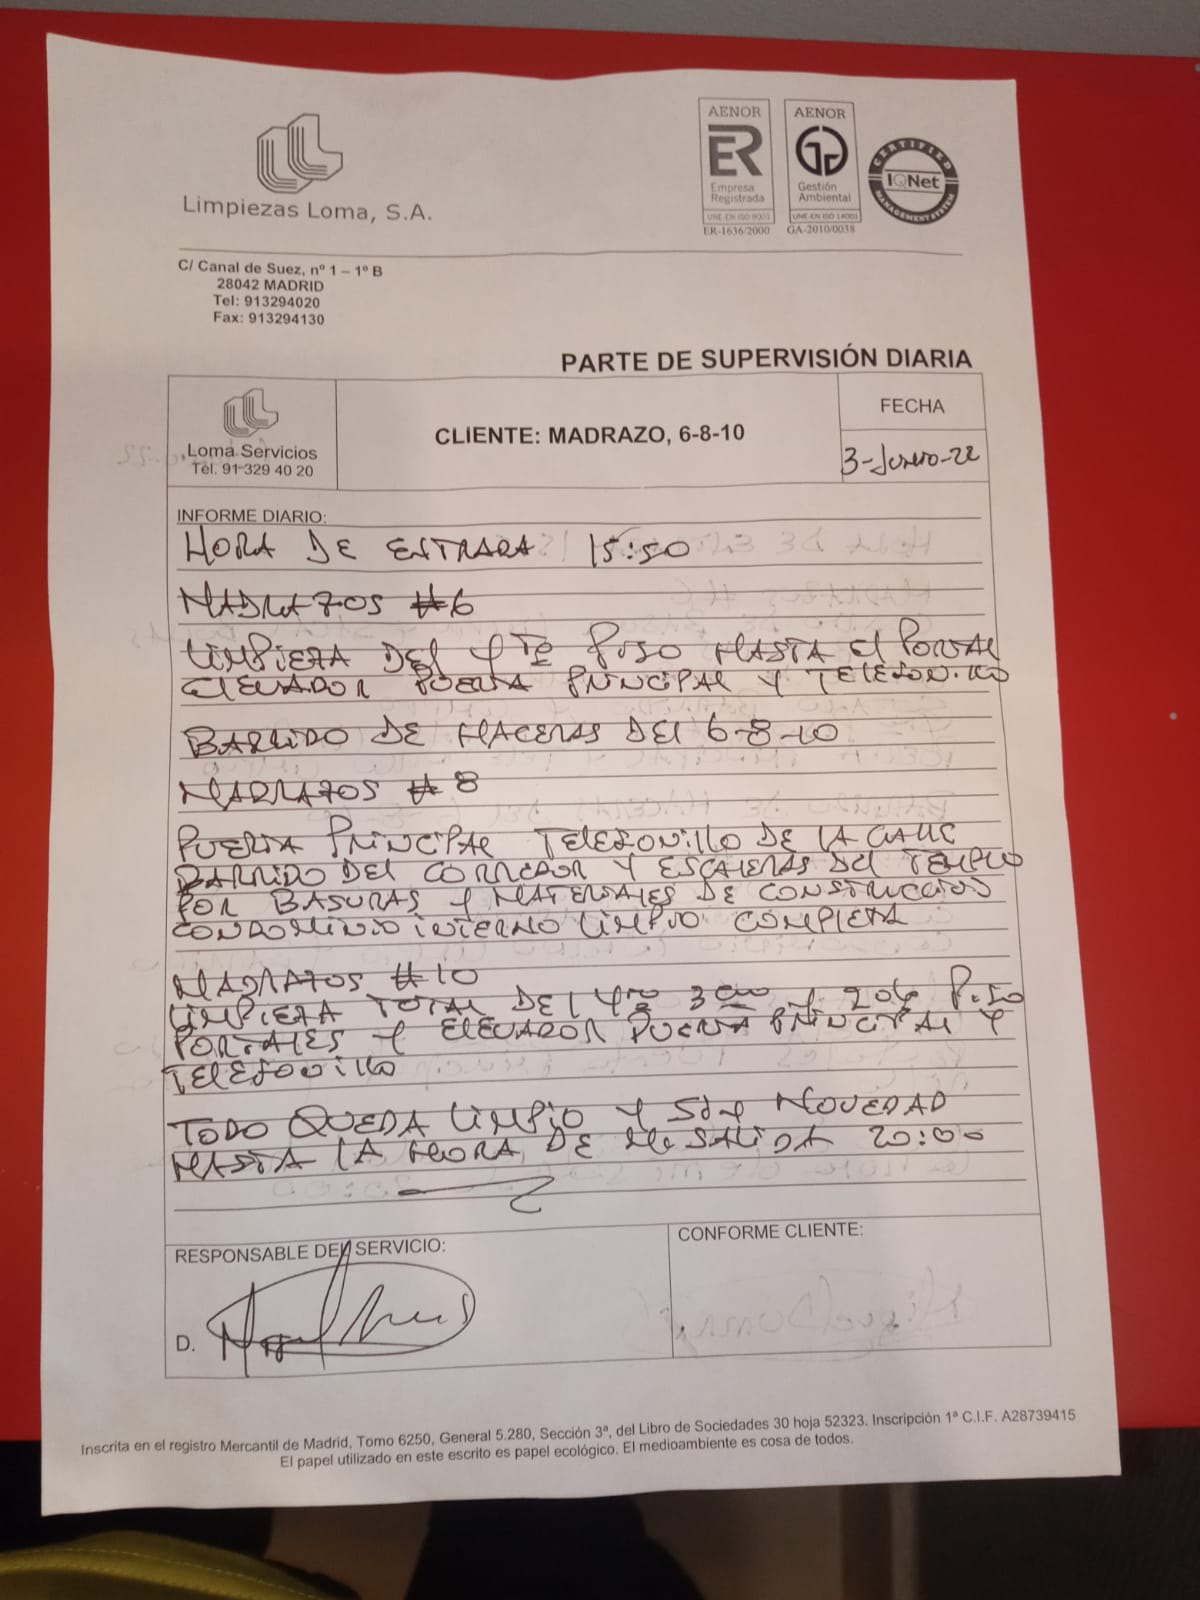 Limpiezas Loma, S.A.
AENOR
ER
Empresa
Registrada
UNE-EN ISO 9001
ER-1636/2000
AENOR
Gestión
Ambiental
UNE-EN ISO 14001
GA-2010/0038
CERTIFIED
IQNet
MANAGEMENT SYSTEM
C/ Canal de Suez, nº 1 – 1º B
28042 MADRID
Tel: 913294020
Fax: 913294130
PARTE DE SUPERVISIÓN DIARIA
Loma Servicios
Tél. 91 329 40 20
CLIENTE: MADRAZO, 6-8-10
FECHA
3-Junio-22
INFORME DIARIO:
HORA DE ENTRARA 15:50
MADRAZOS #6
LIMPIEZA DEL 4TO PISO HASTA El PORTAL
ElEVADOR PUERTA PRINCIPAL Y TELEFONILLO
BARRIDO DE HACERAS DEl 6-8-10
MADRAZOS #8
PUERTA PRINCIPAL TELEFONILLO DE LA CALLE
BARRIDO DEL CORREDOR Y ESCALERAS DEL TEMPLO
POR BASURAS Y MATERIALES DE CONSTRUCCION
CONDOMINIO INTERNO LIMPIO COMPLETA
MADRAZOS #10
LIMPIEZA TOTAL DEL 4TO 3ero Y 2do PISO
PORTALES Y ELEVADOR PUERTA PRINCIPAL Y
TELEFONILLO
TODO QUEDA LIMPIO Y SIN NOVEDAD
HASTA LA HORA DE MI SALIDA 20:00
RESPONSABLE DEL SERVICIO:
D.
CONFORME CLIENTE:
Inscrita en el registro Mercantil de Madrid, Tomo 6250, General 5.280, Sección 3ª, del Libro de Sociedades 30 hoja 52323. Inscripción 1ª C.I.F. A28739415
El papel utilizado en este escrito es papel ecológico. El medioambiente es cosa de todos.